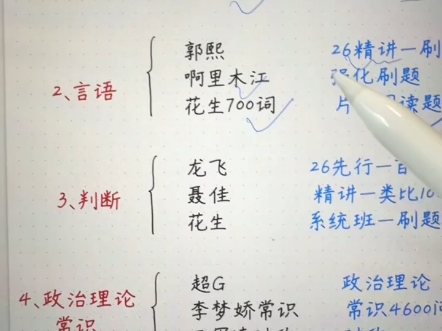 郭熙 26精讲一刷
2、言语 啊里木江 强化刷题
花生700词 片 读题
龙飞 26先行一
3、判断 聂佳 精讲一类比10
花生 系统班一刷题
超G 政治理论
4、政治理论 李梦娇常识 常识4600
常识